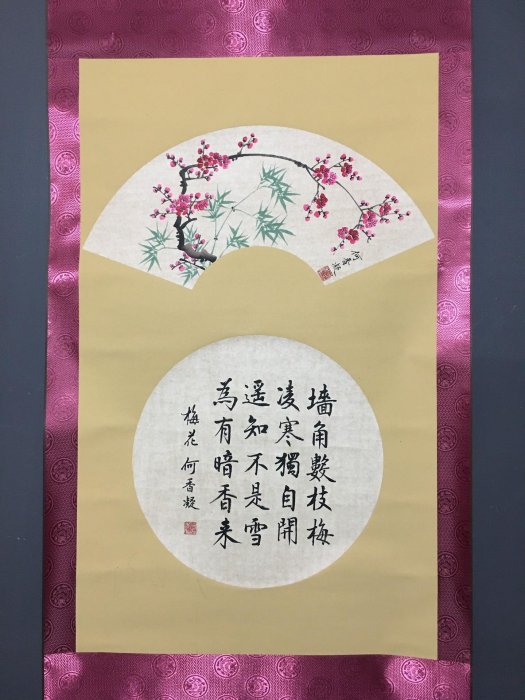 何香凝
墙角數枝梅
凌寒獨自開
遥知不是雪
為有暗香来
梅花 何香凝